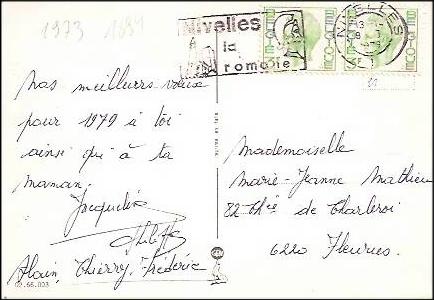 1973 1894
Nivelles
la
romane
NIVELLES
nos meilleurs vœux
pour 1979 à toi
ainsi qu'à ta
maman.
Jacqueline
Alain, Thierry, Frédéric
02.66.003
Mademoiselle
Marie-Jeanne Mathieu
82 Chée de Charleroi
6220 Fleurus.